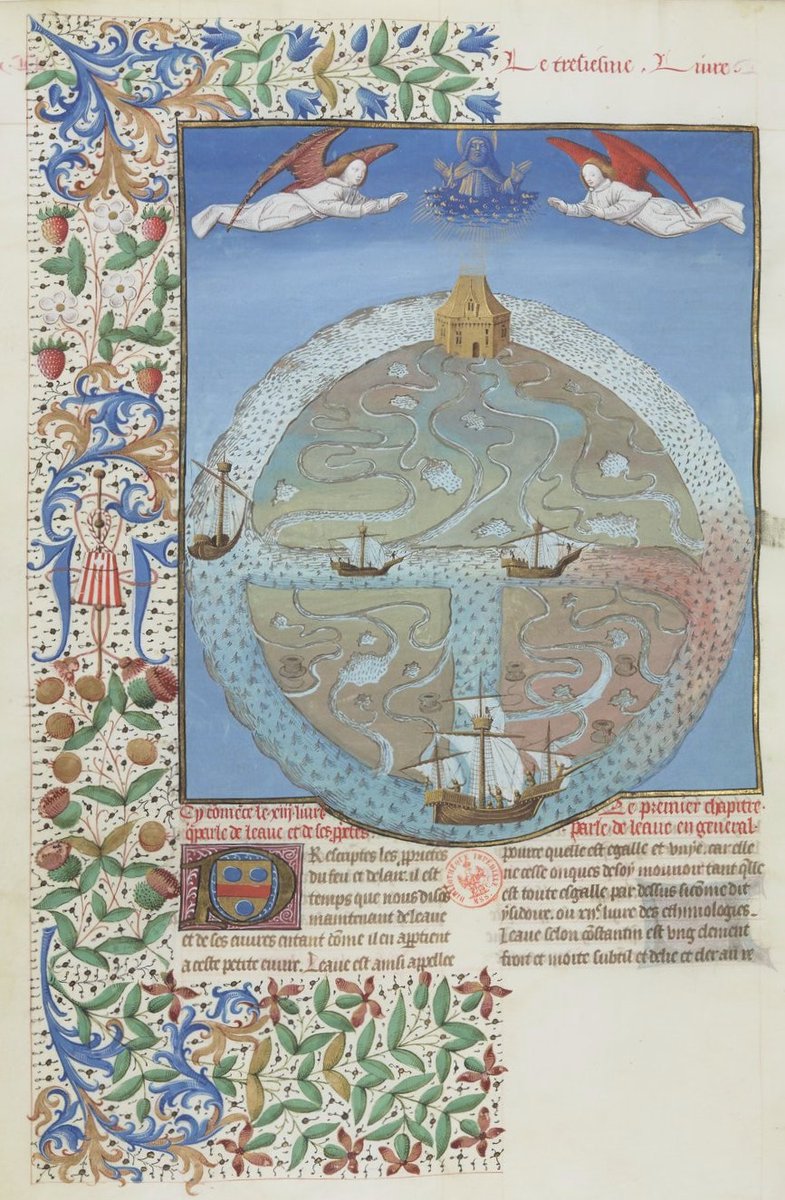 Le tresiesme . Liure
Cy comẽce le xiij liure
q̃ parle de leaue et de ses p̃p̃tes
PR escriptes les p̃prietes
du feu et de lair. il est
temps que nous disõs
maintenant de leaue
et de ses euures entant cõme il en apptient
a ceste petite euure. Leaue est ainsi appellee
Le premier chapitre
parle de leaue en general.
pource quelle est egalle et vnye. car elle
ne cesse onques de soy mouuoir tant q̃lle
est toute esgalle par dessus sicõme dit
ysidoire. ou xiije liure des ethimologies.
Leaue selon cõstantin est vng element
froit et moite subtil et delie et cler au re